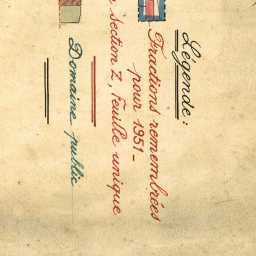 Légende:
Fractions remembrées
pour 1951_
section Z, feuille unique
Domaine public